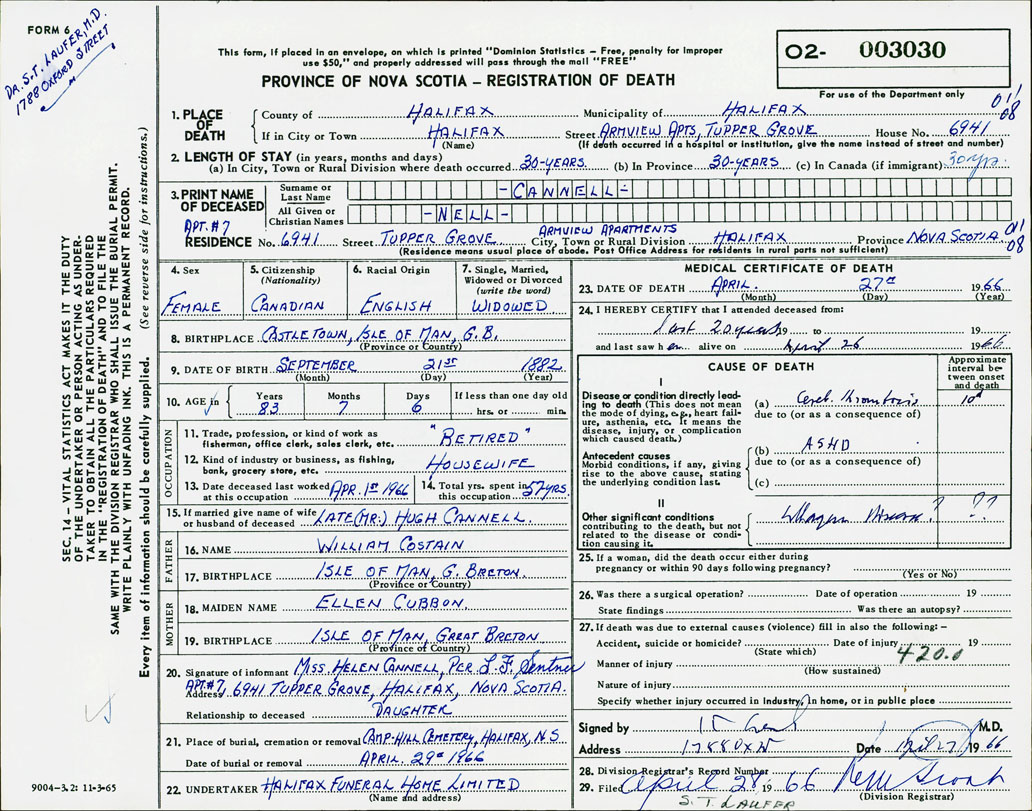 FORM 6
DR. S.T. LAUFER, M.D.
1788 OXFORD STREET
This form, if placed in an envelope, on which is printed "Dominion Statistics – Free, penalty for improper
use $50," and properly addressed will pass through the mail "FREE"
PROVINCE OF NOVA SCOTIA – REGISTRATION OF DEATH
O2- 003030
For use of the Department only
011
08
1. PLACE OF DEATH County of HALIFAX Municipality of HALIFAX
If in City or Town HALIFAX Street ARMVIEW APTS, TUPPER GROVE House No. 6941
(Name) (If death occurred in a hospital or institution, give the name instead of street and number)
2. LENGTH OF STAY (in years, months and days)
(a) In City, Town or Rural Division where death occurred 30-YEARS. (b) In Province 30-YEARS (c) In Canada (if immigrant) 30 yrs.
3. PRINT NAME OF DECEASED Surname or Last Name -CANNELL-
All Given or Christian Names -NELL-
APT.#7 ARMVIEW APARTMENTS
RESIDENCE No. 6941 Street TUPPER GROVE City, Town or Rural Division HALIFAX Province NOVA SCOTIA 011
08
(Residence means usual place of abode. Post Office Address for residents in rural parts not sufficient)
SEC. 14 – VITAL STATISTICS ACT MAKES IT THE DUTY
OF THE UNDERTAKER OR PERSON ACTING AS UNDER-
TAKER TO OBTAIN ALL THE PARTICULARS REQUIRED
IN THE "REGISTRATION OF DEATH" AND TO FILE THE
SAME WITH THE DIVISION REGISTRAR WHO SHALL ISSUE THE BURIAL PERMIT.
WRITE PLAINLY WITH UNFADING INK. THIS IS A PERMANENT RECORD.
Every item of information should be carefully supplied. (See reverse side for instructions.)
4. Sex
FEMALE
5. Citizenship
(Nationality)
CANADIAN
6. Racial Origin
ENGLISH
7. Single, Married,
Widowed or Divorced
(write the word)
WIDOWED
8. BIRTHPLACE CASTLETOWN, ISLE OF MAN, G.B.
(Province or Country)
9. DATE OF BIRTH SEPTEMBER 21ST 1882
(Month) (Day) (Year)
10. AGE in Years Months Days If less than one day old
83 7 6 hrs. or min.
OCCUPATION
11. Trade, profession, or kind of work as
fisherman, office clerk, sales clerk, etc. "RETIRED"
12. Kind of industry or business, as fishing,
bank, grocery store, etc. HOUSEWIFE
13. Date deceased last worked
at this occupation APR. 1ST 1966
14. Total yrs. spent in
this occupation 57 YRS.
15. If married give name of wife
or husband of deceased LATE (MR.) HUGH CANNELL.
FATHER
16. NAME WILLIAM COSTAIN
17. BIRTHPLACE ISLE OF MAN, G. BRETON.
(Province or Country)
MOTHER
18. MAIDEN NAME ELLEN CUBBON.
19. BIRTHPLACE ISLE OF MAN, GREAT BRETON.
(Province of Country)
20. Signature of informant MISS. HELEN CANNELL, PER L.F. Sentner
APT.#7
Address 6941 TUPPER GROVE, HALIFAX, NOVA SCOTIA.
Relationship to deceased DAUGHTER
21. Place of burial, cremation or removal CAMP-HILL CEMETERY, HALIFAX, N.S.
Date of burial or removal APRIL. 29TH 1966
22. UNDERTAKER HALIFAX FUNERAL HOME LIMITED
(Name and address)
9004–3.2: 11-3-65
MEDICAL CERTIFICATE OF DEATH
23. DATE OF DEATH APRIL. 27th 1966
(Month) (Day) (Year)
24. I HEREBY CERTIFY that I attended deceased from:
last 20 years 19 to 19
and last saw h er alive on April 26 1966
CAUSE OF DEATH
Approximate
interval be-
tween onset
and death
I
Disease or condition directly lead-
ing to death (This does not mean
the mode of dying, e.g., heart fail-
ure, asthenia, etc. It means the
disease, injury, or complication
which caused death.)
(a) Cereb. thrombosis 10d
due to (or as a consequence of)
Antecedent causes
Morbid conditions, if any, giving
rise to the above cause, stating
the underlying condition last.
(b) ASHD
due to (or as a consequence of)
(c)
II
Other significant conditions
contributing to the death, but not
related to the disease or condi-
tion causing it.
? ??
25. If a woman, did the death occur either during
pregnancy or within 90 days following pregnancy?
(Yes or No)
26. Was there a surgical operation? Date of operation 19
State findings Was there an autopsy?
27. If death was due to external causes (violence) fill in also the following: –
Accident, suicide or homicide? Date of injury 19
(State which) 420.0
Manner of injury
(How sustained)
Nature of injury
Specify whether injury occurred in Industry, in home, or in public place
Signed by M.D.
Address 1788 Date April 27 1966
28. Division Registrar's Record Number
29. Filed April 28 1966
(Division Registrar)
S. T. LAUFER